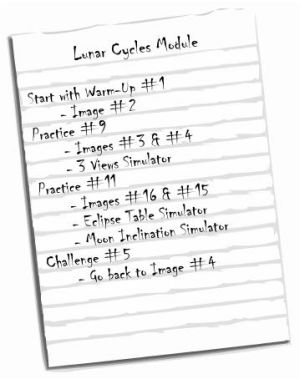 Lunar Cycles Module
Start with Warm-Up #1
- Image #2
Practice #9
- Images #3 & #4
- 3 Views Simulator
Practice #11
- Images #16 & #15
- Eclipse Table Simulator
- Moon Inclination Simulator
Challenge #5
- Go back to Image #4